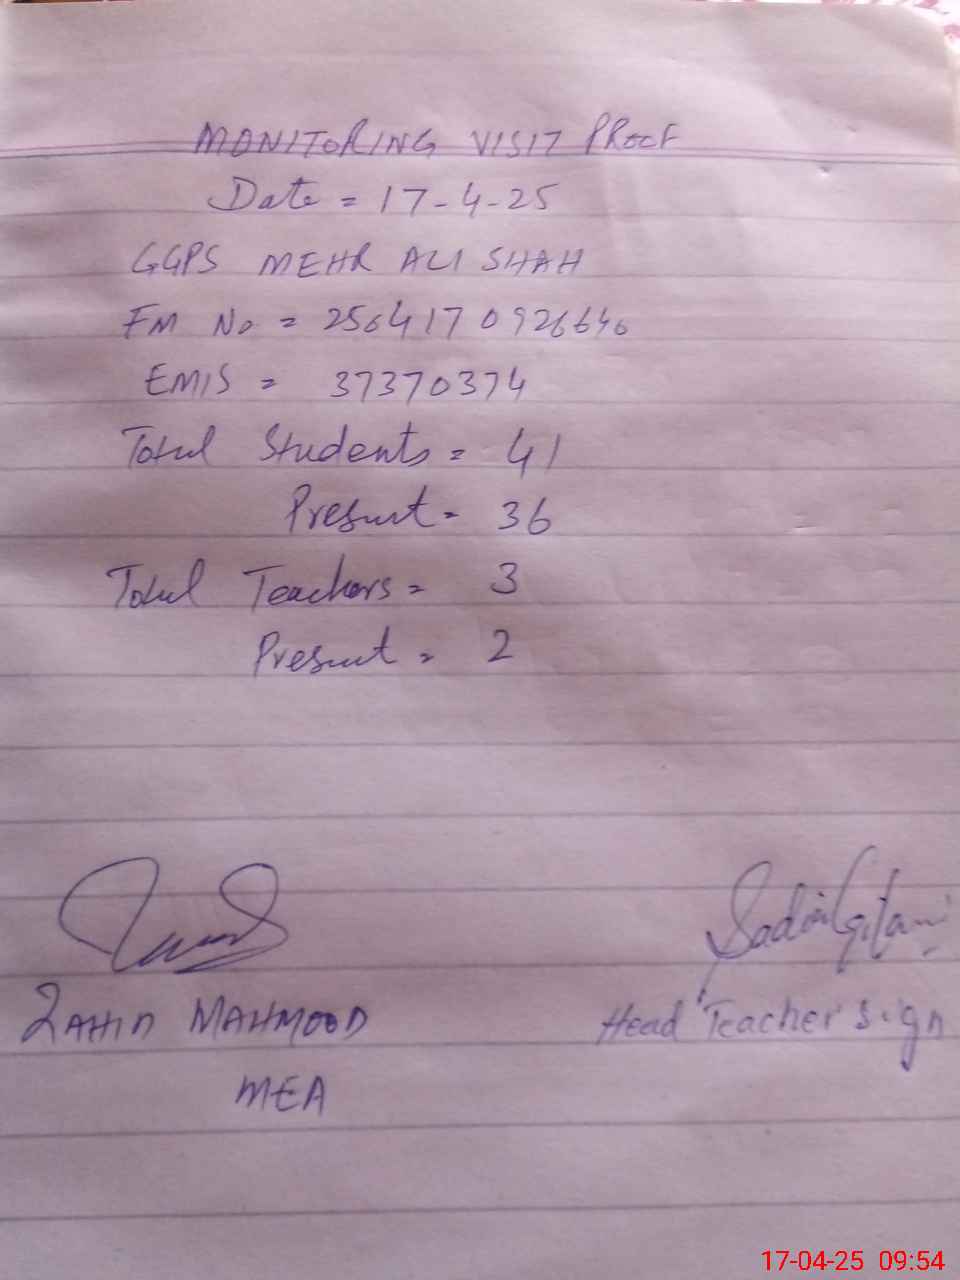 MONITORING VISIT PROOF
Date = 17-4-25
GGPS MEHR ALI SHAH
FM No = 2564170926646
EMIS = 37370374
Total Students = 41
Present = 36
Total Teachers = 3
Present = 2
Sadia Gilani
ZAHID MAHMOOD
Head Teacher Sign
MEA
17-04-25 09:54